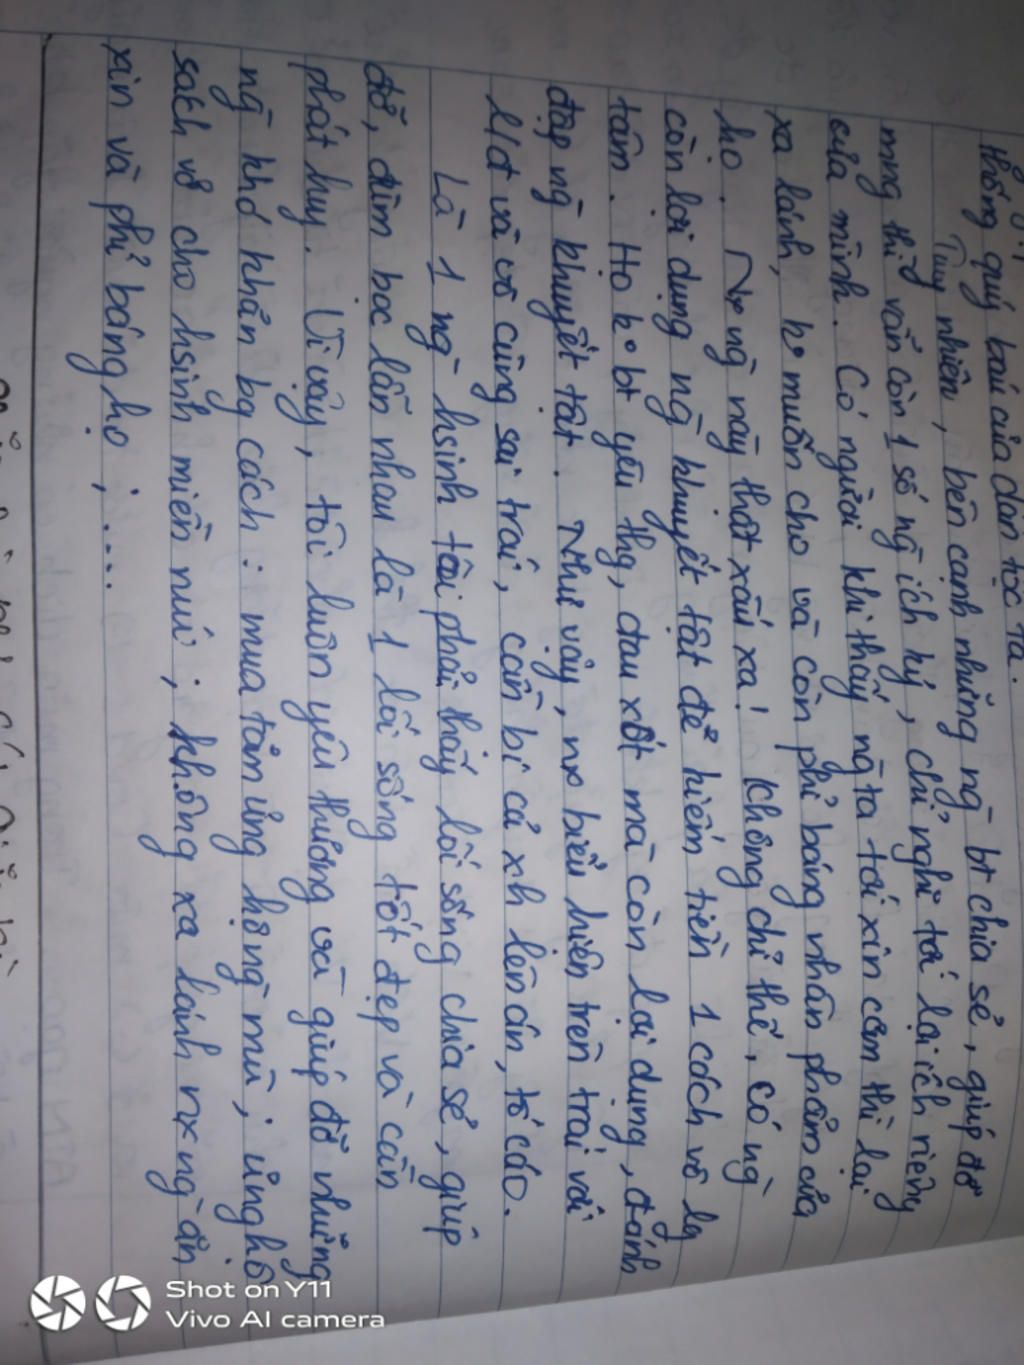 thống quý báu của dân tộc ta.
Tuy nhiên, bên cạnh những ng` bt chia sẻ, giúp đỡ
mng thì vẫn còn 1 số ng` ích kỷ, chỉ nghĩ tới lại ích riêng
của mình. Có người khi thấy ng` ta tới xin cơm thì lại
xa lánh, ko muốn cho và còn phỉ báng nhân phẩm của
họ. Nx ng` này thật xấu xa! Không chỉ thế, có ng`
còn lợi dụng ng` khuyết tật để kiếm tiền 1 cách vô lg
tâm. Họ ko bt yêu thg, đau xót mà còn lợi dụng, đánh
đập ng` khuyết tật. Như vậy, nx biểu hiện trên trái với
l/đ và vô cùng sai trái, cần bị cả xh lên án, tố cáo.
Là 1 ng` hsinh tôi phải thấy lối sống chia sẻ, giúp
đỡ, đùm bọc lẫn nhau là 1 lối sống tốt đẹp và cần
phát huy. Vì vậy, tôi luôn yêu thương và giúp đỡ những
ng` khó khăn bg cách: mua tăm ủng hộ ng` mù; ủng hộ
sách vở cho hsinh miền núi; không xa lánh nx ng` ăn
xin và phỉ báng họ;....
Shot on Y11
Vivo AI camera